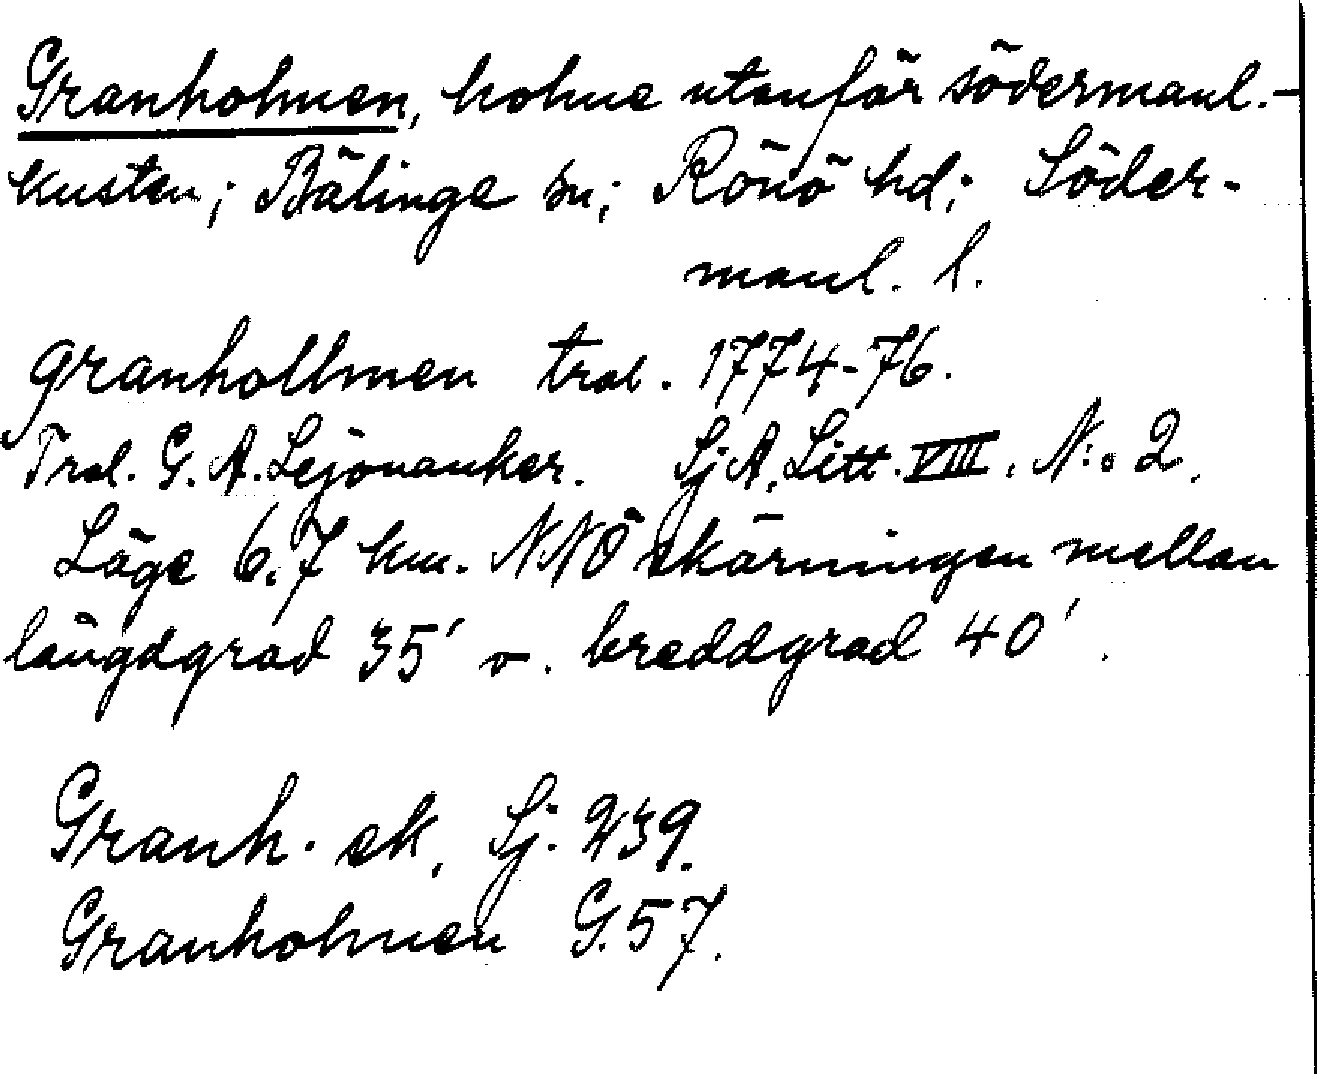 Granholmen, holme utanför södermanl.-
kusten; Bälinge sn; Rönö hd; Söder-
manl. l.
granhollmen trol. 1774-76.
Trol. G. A. Lejonanker. Sj A, Litt. VIII. N:o 2.
Läge 6.7 km. NNÖ skärningen mellan
längdgrad 35′ o. breddgrad 40′.
Granh. ek, Sj. 239.
Granholmen G. 57.